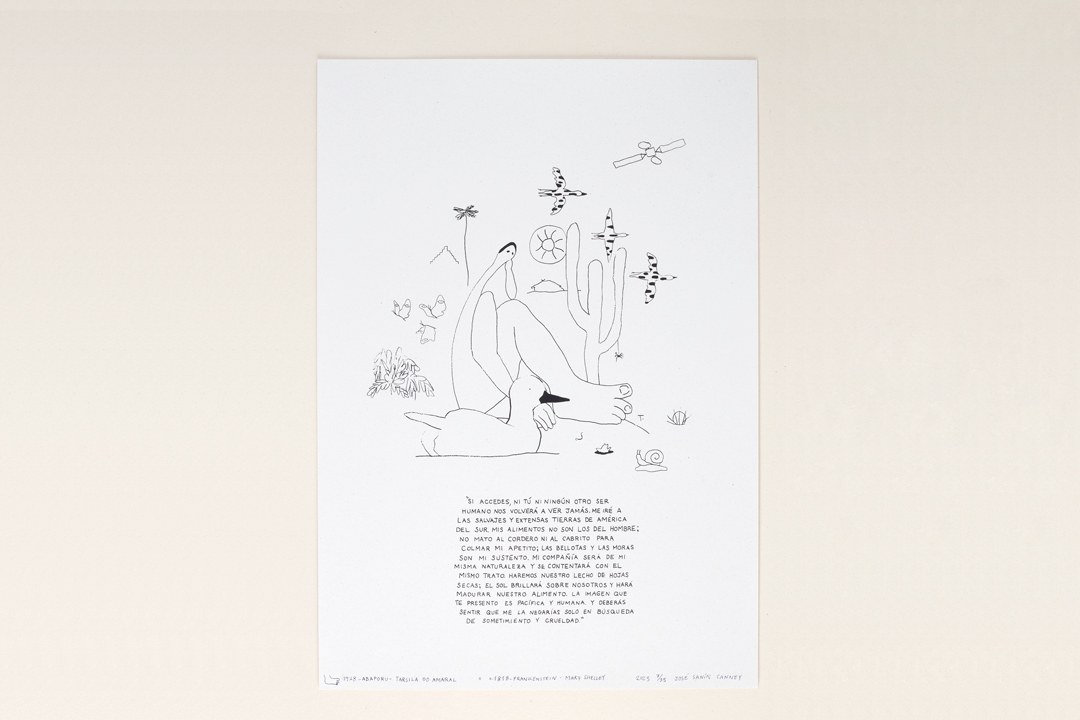 "SI ACCEDES, NI TÚ NI NINGÚN OTRO SER
HUMANO NOS VOLVERÁ A VER JAMÁS. ME IRÉ A
LAS SALVAJES Y EXTENSAS TIERRAS DE AMÉRICA
DEL SUR. MIS ALIMENTOS NO SON LOS DEL HOMBRE;
NO MATO AL CORDERO NI AL CABRITO PARA
COLMAR MI APETITO; LAS BELLOTAS Y LAS MORAS
SON MI SUSTENTO. MI COMPAÑÍA SERÁ DE MI
MISMA NATURALEZA Y SE CONTENTARÁ CON EL
MISMO TRATO. HAREMOS NUESTRO LECHO DE HOJAS
SECAS; EL SOL BRILLARÁ SOBRE NOSOTROS Y HARÁ
MADURAR NUESTRO ALIMENTO. LA IMAGEN QUE
TE PRESENTO ES PACÍFICA Y HUMANA. Y DEBERÁS
SENTIR QUE ME LA NEGARÍAS SOLO EN BÚSQUEDA
DE SOMETIMIENTO Y CRUELDAD."
1928-ABAPORU- TARSILA DO AMARAL 1818-FRANKENSTEIN- MARY SHELLEY JOSÉ SANÍN